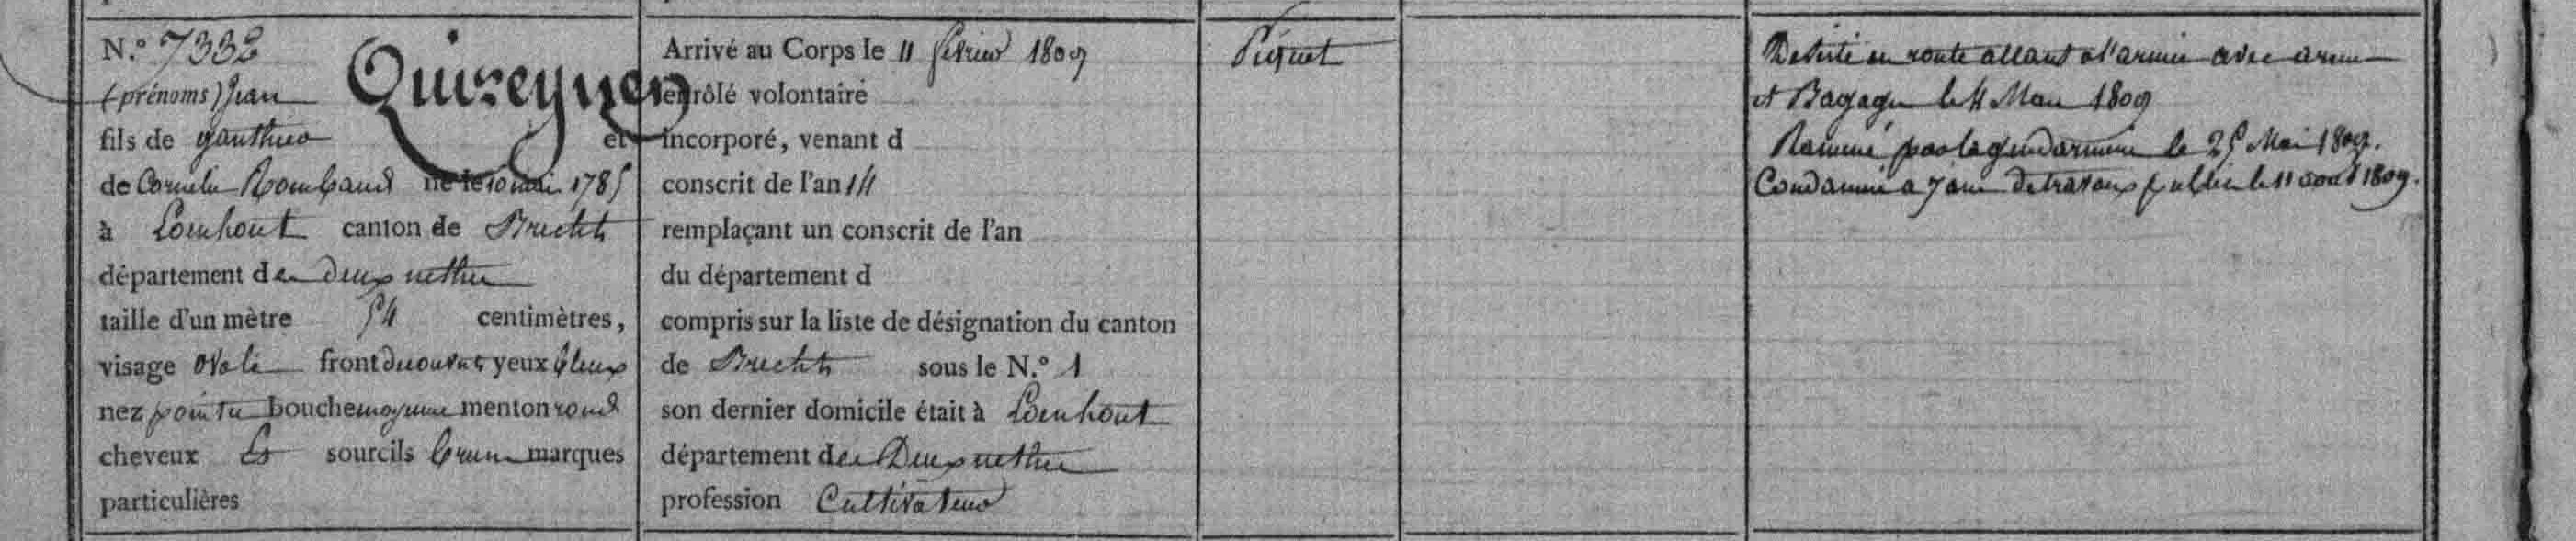 N.° 7332 Quizeynen
(prénoms) Jean
fils de gauthier et
de Cornelie Rombaud né le 10 mai 1785
à Loenhout canton de Brecht
département des deux nethes
taille d'un mètre 54 centimètres,
visage ovale front decouvert yeux bleux
nez pointu bouche moyenne menton rond
cheveux et sourcils bruns marques
particulières
Arrivé au Corps le 11 fevrier 1809
enrôlé volontaire
incorporé, venant d
conscrit de l'an 14
remplaçant un conscrit de l'an
du département d
compris sur la liste de désignation du canton
de Brecht sous le N.° 1
son dernier domicile était à Loenhout
département des Deux nethes
profession Cultivateur
Piquet
Deserté en route allant a l'armée avec armes
et Bagages le 4 Mars 1809
Ramené par la gendarmerie le 25 Mai 1809.
Condamné a 7 ans de travaux publics le 11 aout 1809.